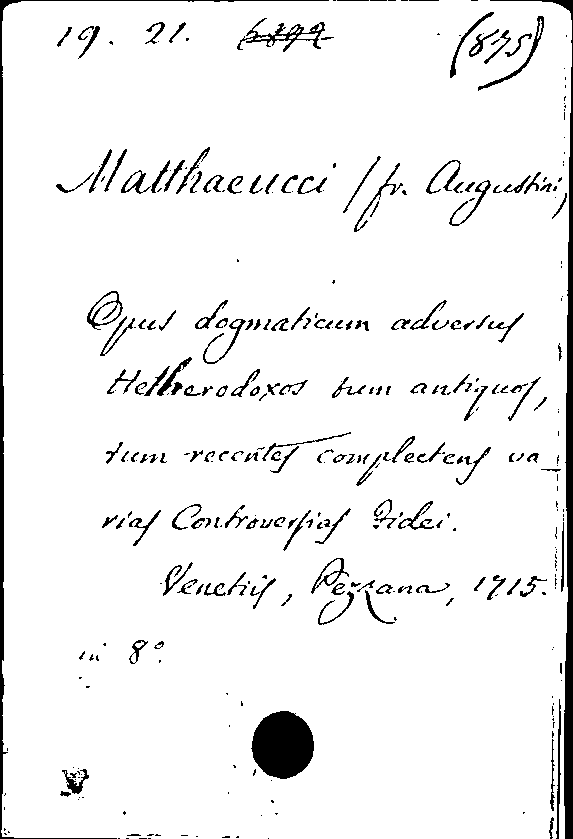 19. 21. (875)
Matthaeucci /fr. Augustini,
Opus dogmaticum adversus
Hetherodoxos tum antiquos,
tum recentes complectens va
rias Controversias Fidei.
Venetiis, Pezzana, 1715.
in 8°.